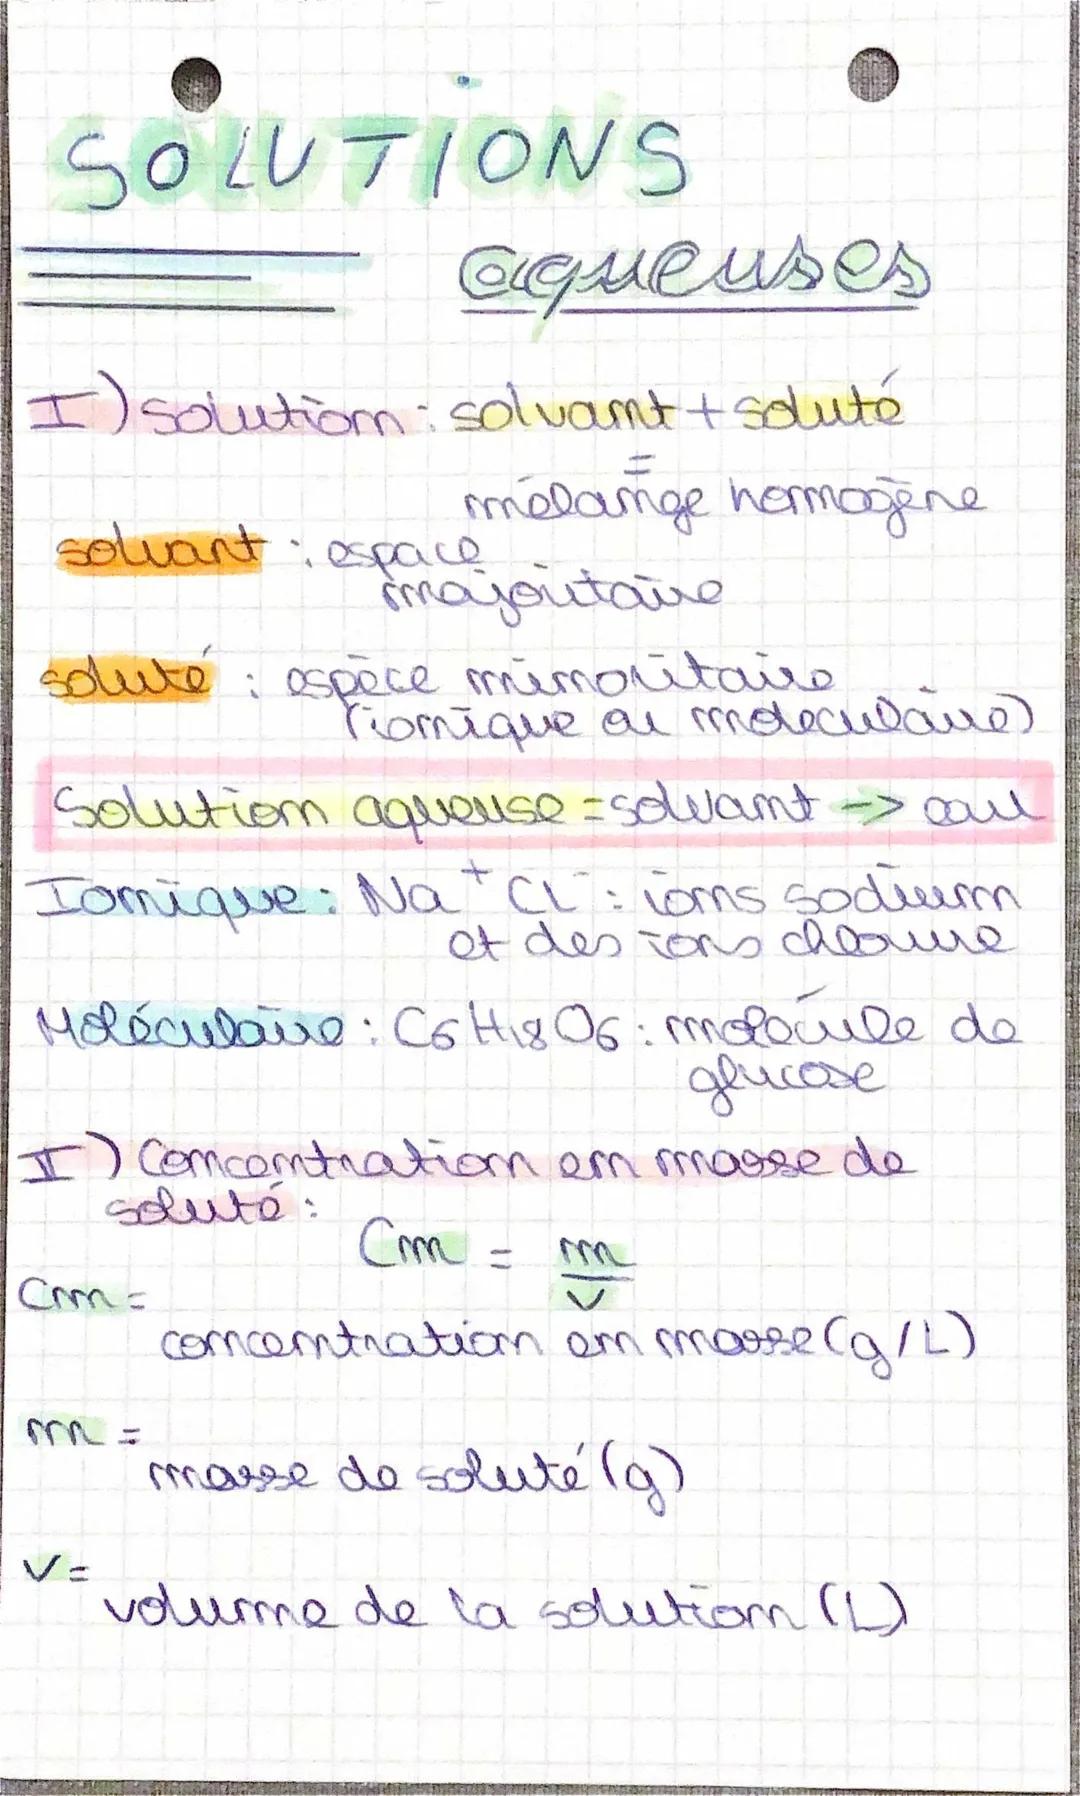 SOLUTIONS
aqueuses
I) solution : solvant + soluté
=
mélange homogène
solvant : espace
majoritaire
soluté : espèce minoritaire
(ionique ou moleculaire)
Solution aqueuse = solvant -> eau
Ionique : Na⁺ Cl⁻ : ions sodium
et des ions chlorure
Moléculaire : C6 H18 O6 : molécule de
glucose
II) Concentration en masse de
soluté :
Cm = m
V
Cm =
concentration en masse (g/L)
m =
masse de soluté (g)
V =
volume de la solution (L)